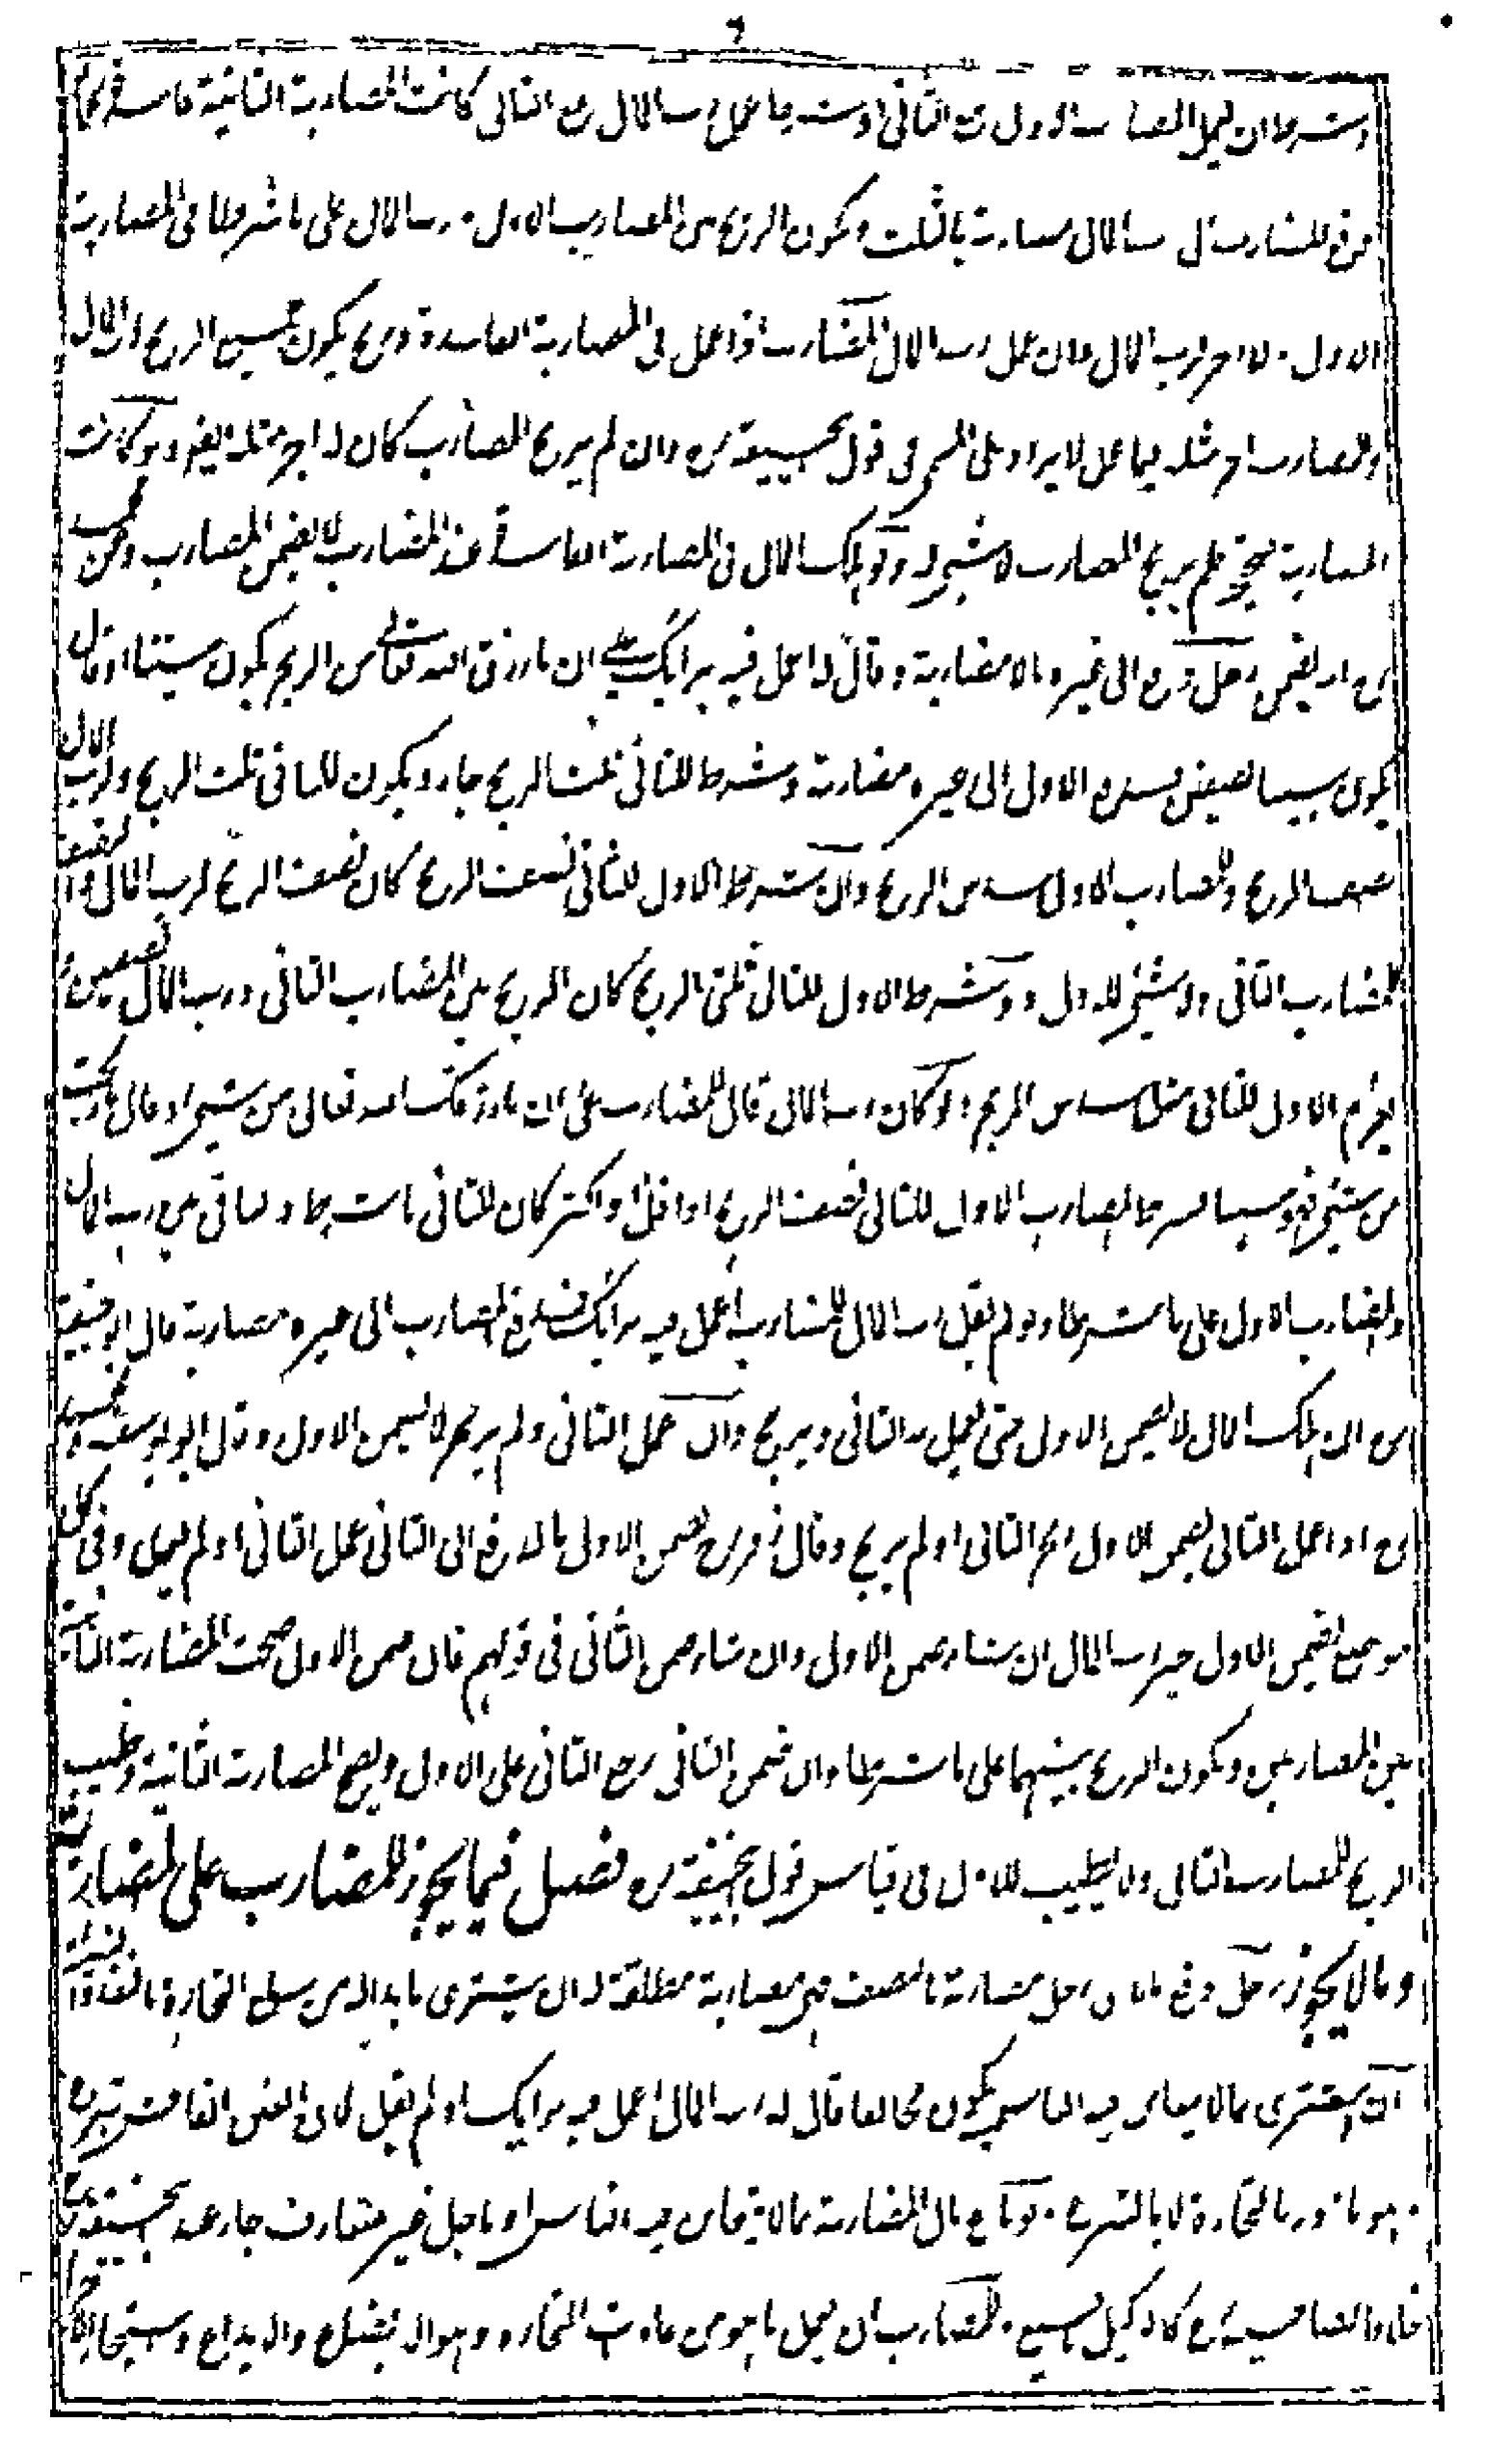 وشرطا ان يعمل المضارب الاول مع الثاني او شرطا عمل رب المال مع الثاني كانت المضاربة الثانية فاسدة
دفع المضارب الى رب المال مضاربة بالثلث ويكون الربح بين المضارب الاول ورب المال على ما شرطا في المضاربة
الاول ولا اجر لرب المال وان عمل رب المال المضارب اذا عمل في المضاربة الفاسدة وربح يكون جميع الربح لرب المال
وللمضارب اجر مثله فيما عمل لا يزاد على المسمى في قول ابي حنيفة رح وان لم يربح المضارب كان له اجر مثله ولو كانت
المضاربة صحيحة فلم يربح المضارب لا شيء له ولو هلك المال في المضاربة الفاسدة عند المضارب لا يضمن المضارب وعن محمد
رح انه يضمن رجل دفع الى غيره مالا مضاربة وقال له اعمل فيه برأيك على ان ما رزق الله تعالى من الربح يكون بيننا او قال
يكون بيننا نصفين فدفع الاول الى غيره مضاربة وشرط للثاني ثلث الربح جاز ويكون للثاني ثلث الربح ولرب المال
نصف الربح وللمضارب الاول سدس الربح وان شرط الاول للثاني نصف الربح كان نصف الربح لرب المال والنصف
للمضارب الثاني ولا شيء للاول ولو شرط الاول للثاني ثلثي الربح كان الربح بين المضارب الثاني ورب المال نصفين و
يغرم الاول للثاني مثل سدس الربح ولو كان رب المال قال للمضارب على ان ما رزقك الله تعالى من شيء او قال ما ربحت
من شيء فهو بيننا فشرط المضارب الاول للثاني نصف الربح او اقل او اكثر كان للثاني ما شرط والباقي بين رب المال
والمضارب الاول على ما شرطا ولو لم يقل رب المال للمضارب اعمل فيه برأيك فدفع المضارب الى غيره مضاربة قال ابو حنيفة
رح ان هلك المال لا يضمن الاول حتى يعمل به الثاني ويربح وان عمل الثاني ولم يربح لا يضمن الاول وقال ابو يوسف ومحمد
رح اذا عمل الثاني يضمن الاول ربح الثاني او لم يربح وقال زفر رح يضمن الاول بالدفع الى الثاني عمل الثاني او لم يعمل وفي كل
موضع يضمن الاول خير رب المال ان شاء ضمن الاول وان شاء ضمن الثاني في قولهم فان ضمن الاول صحت المضاربة الثانية
بين المضاربين ويكون الربح بينهما على ما شرطا وان ضمن الثاني رجع الثاني على الاول ويصح المضاربة الثانية ويطيب
الربح للمضارب الثاني ولا يطيب للاول في قياس قول ابي حنيفة رح فصل فيما يجوز للمضارب على المضاربة
وما لا يجوز رجل دفع مالا الى رجل مضاربة بالنصف فهي مضاربة مطلقة له ان يشتري ما بدا له من سلع التجارة
ان اشترى بما لا يتغابن فيه الناس يكون مخالفا قال له رب المال اعمل فيه برأيك او لم يقل لان الغبن الفاحش تبرع
وهو مأذون بالتجارة لا بالتبرع ولو باع مال المضاربة بما لا يتغابن فيه الناس او باجل غير متعارف جاز عند ابي حنيفة رح
خلافا لصاحبيه رح كالوكيل بالبيع وللمضارب ان يعمل ما هو من عادات التجار وهو الابضاع والايداع واستيجار